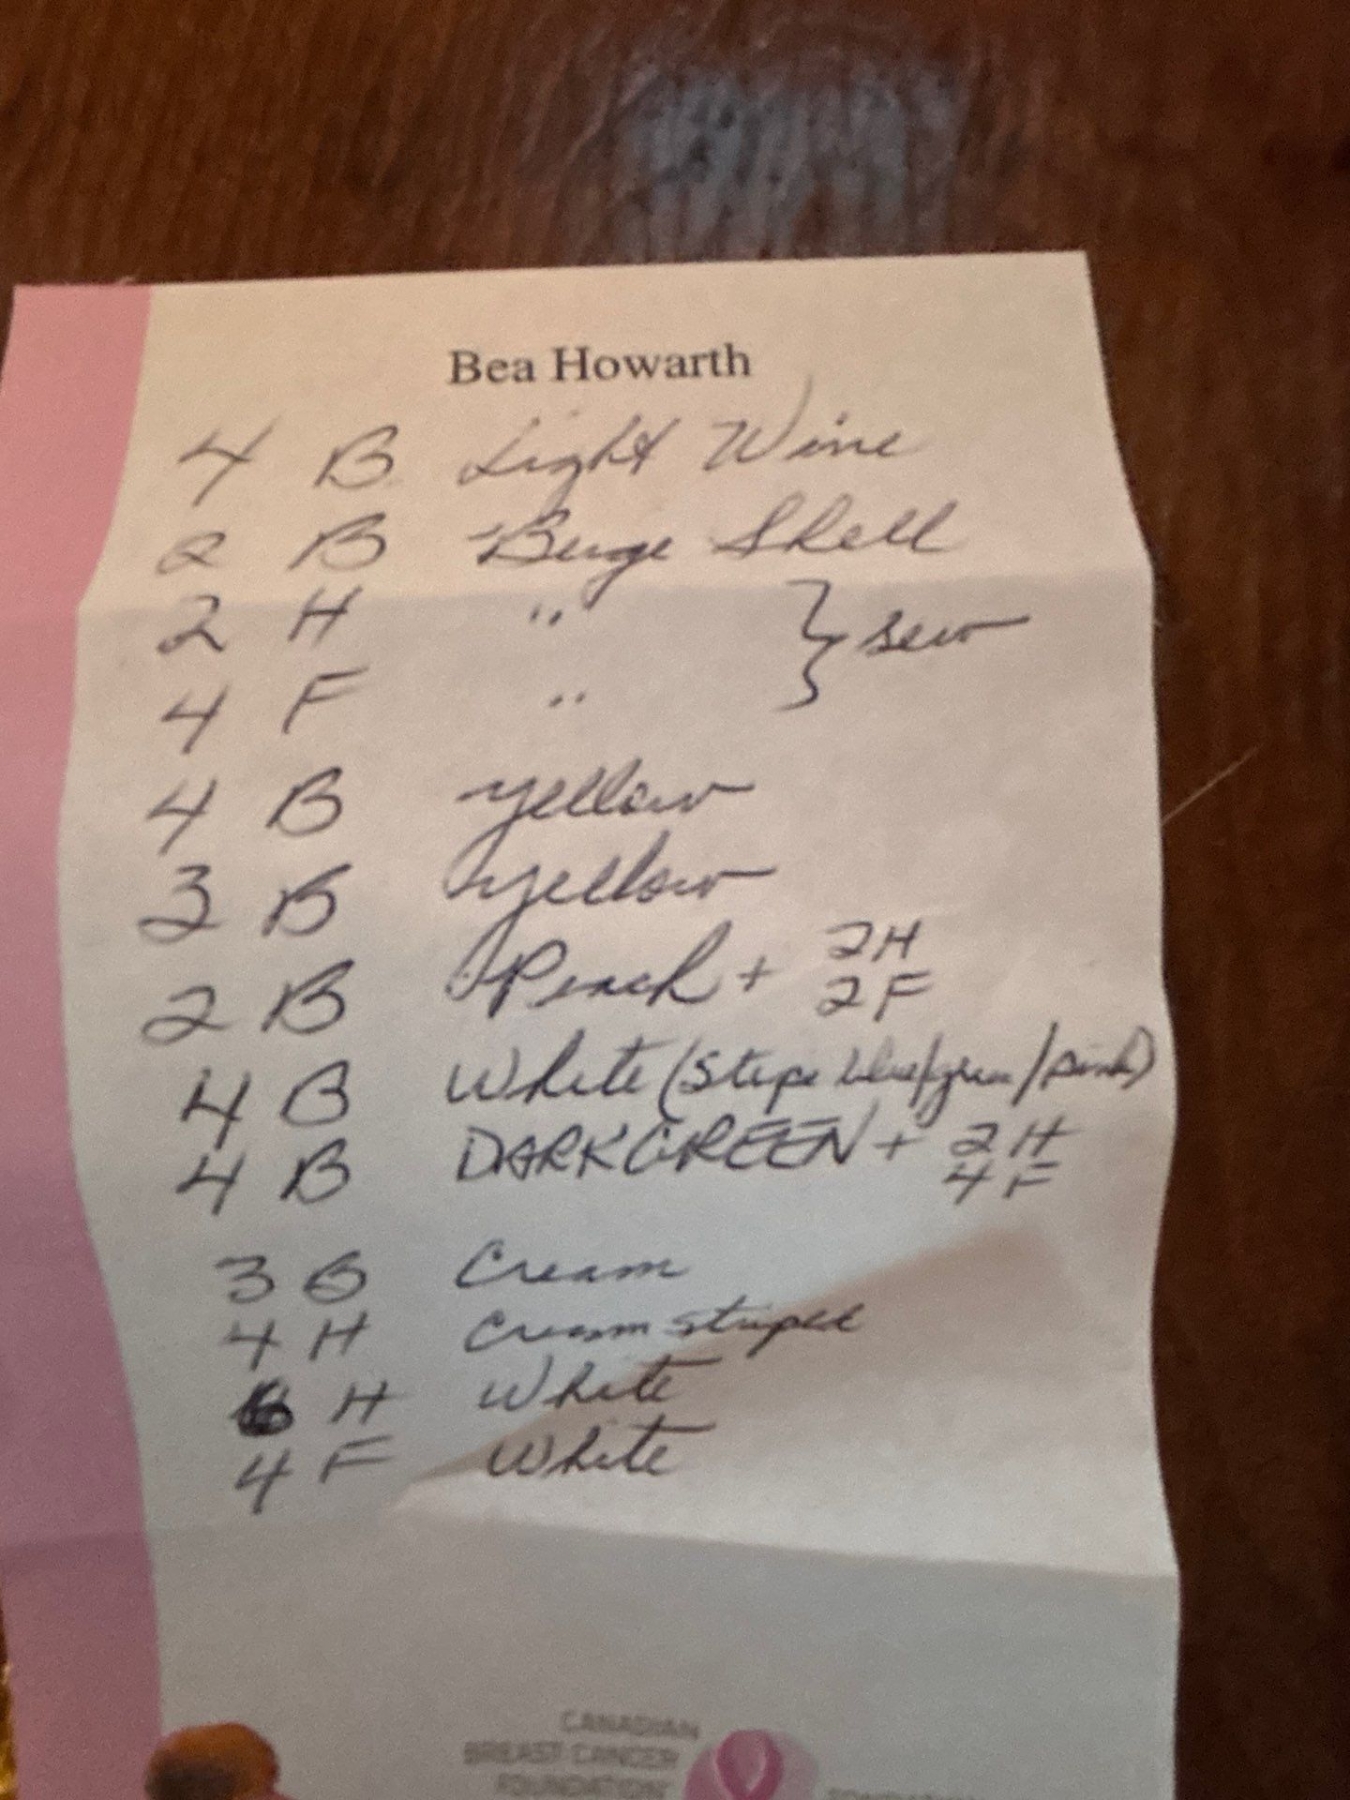 Bea Howarth
4 B Light Wine
2 B Beige Shell
2 H " } sew
4 F "
4 B yellow
3 B yellow
2 B Peach + 2H 2F
4 B White (stripe blue/green/pink)
4 B DARK GREEN + 2H 4F
3 B Cream
4 H Cream striped
6 H White
4 F White
CANADIAN
BREAST CANCER
FOUNDATION